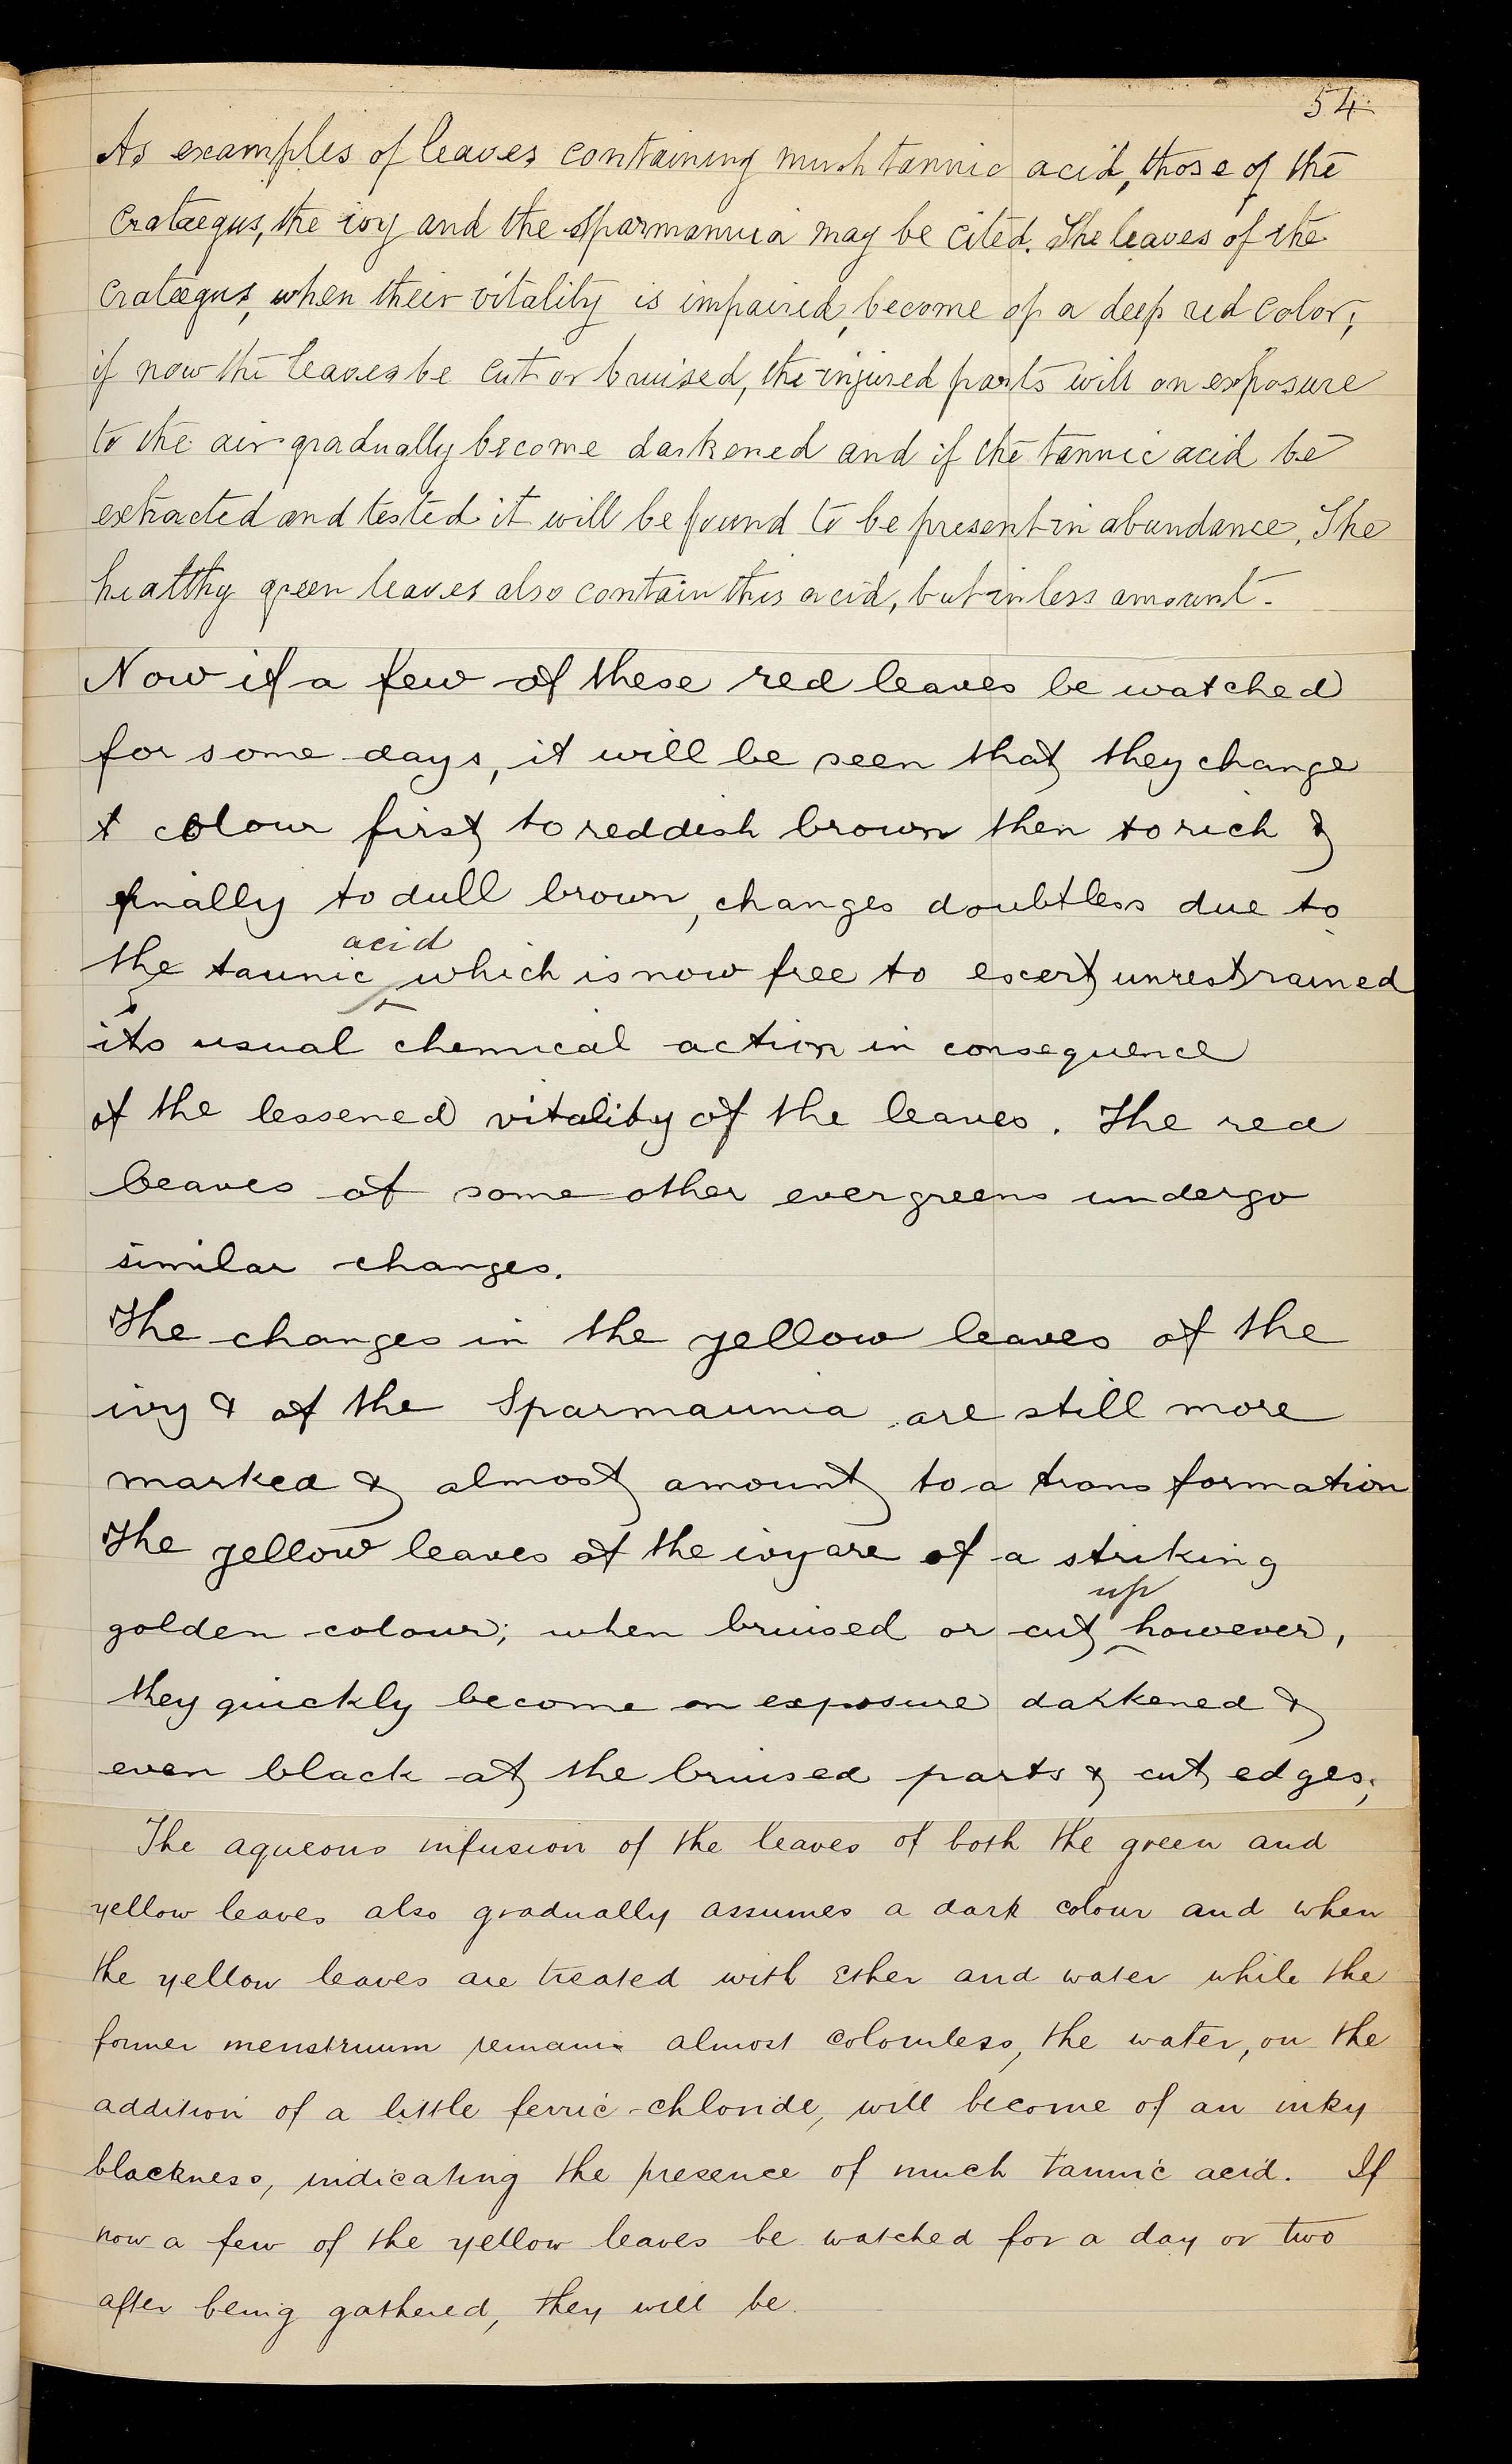 54.
As examples of leaves containing much tannic acid, those of the
Cratægus, the ivy and the Sparmannia may be cited. The leaves of the
Cratægus, when their vitality is impaired, become of a deep red color;
if now the leaves be cut or bruised, the injured parts will on exposure
to the air gradually become darkened and if the tannic acid be
extracted and tested it will be found to be present in abundance. The
healthy green leaves also contain this acid, but in less amount.
Now if a few of these red leaves be watched
for some days, it will be seen that they change
colour first to reddish brown then to rich &
finally to dull brown, changes doubtless due to
acid
the tannic which is now free to exert unrestrained
its usual chemical action in consequence
of the lessened vitality of the leaves. The red
leaves of some other evergreens undergo
similar changes.
The changes in the yellow leaves of the
ivy & of the Sparmannia are still more
marked & almost amount to a transformation
The yellow leaves of the ivy are of a striking
up
golden colour; when bruised or cut however,
they quickly become on exposure darkened &
even black at the bruised parts & cut edges;
The aqueous infusion of the leaves of both the green and
yellow leaves also gradually assumes a dark colour and when
the yellow leaves are treated with Ether and water while the
former menstruum remains almost colourless, the water, on the
addition of a little ferric-chloride, will become of an inky
blackness, indicating the presence of much tannic acid. If
now a few of the yellow leaves be watched for a day or two
after being gathered, they will be